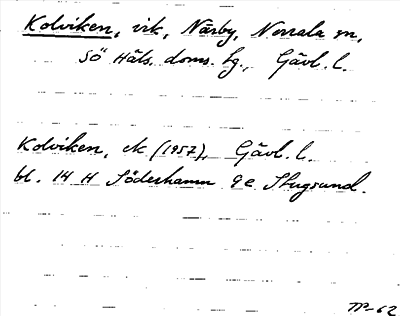 Kolviken, vik, Närby, Norrala sn,
Sö Häls. doms. tg., Gävl. l.
Kolviken, ek (1957), Gävl. l.
bl. 14 H Söderhamn 9 e Stugsund.
TP-62